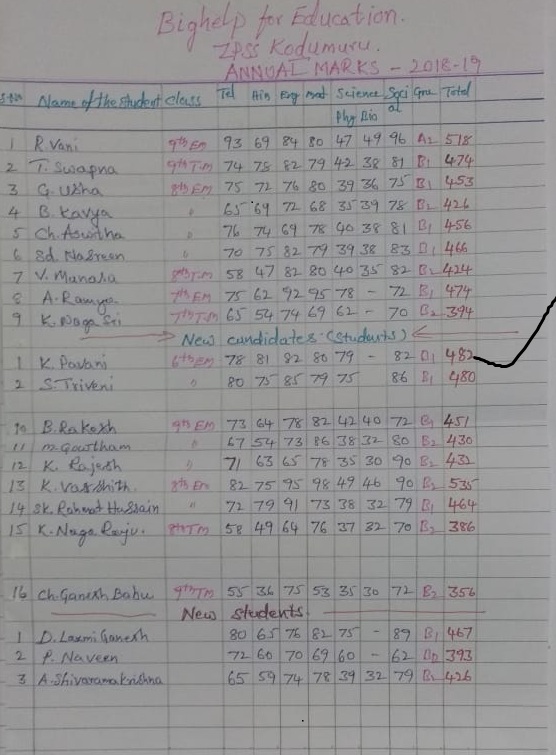 Bighelp for Education.
ZPSS Kodumuru.
ANNUAL MARKS - 2018-19
S.No Name of the student Class Tel Hin Eng Mat Science Soci Gra Total
Phy Bio al
1 R. Vani 9th Em 93 69 84 80 47 49 96 A2 518
2 T. Swapna 9th T.m 74 78 82 79 42 38 81 B1 474
3 G. Usha 8th Em 75 72 76 80 39 36 75 B1 453
4 B. Kavya " 65 69 72 68 35 39 78 B2 426
5 Ch. Aswitha " 76 74 69 78 40 38 81 B1 456
6 Sd. Nasreen " 70 75 82 79 39 38 83 B1 466
7 V. Manasa 8th T.m 58 47 82 80 40 35 82 B2 424
8 A. Ramya 7th Em 75 62 92 95 78 - 72 B1 474
9 K. Naga Sri 7th T.m 65 54 74 69 62 - 70 B2 394
New candidates (Students)
1 K. Pavani 6th Em 78 81 82 80 79 - 82 B1 482
2 S. Triveni " 80 75 85 79 75 86 B1 480
10 B. Rakesh 9th Em 73 64 78 82 42 40 72 B1 451
11 M. Gowtham " 67 54 73 86 38 32 80 B2 430
12 K. Rajesh " 71 63 65 78 35 30 90 B2 432
13 K. Varshith. 8th Em 82 75 95 98 49 46 90 B2 535
14 SK. Rahmat Hussain " 72 79 91 73 38 32 79 B1 464
15 K. Naga Raju. 8th T.m 58 49 64 76 37 32 70 B2 386
16 Ch. Ganesh Babu 9th T.m 55 36 75 53 35 30 72 B2 356
New students
1 D. Laxmi Ganesh 80 65 76 82 75 - 89 B1 467
2 P. Naveen 72 60 70 69 60 - 62 393
3 A. Shivaramakrishna 65 59 74 78 39 32 79 B2 426